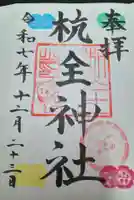 奉拝
杭全神社
令和七年十二月二十二日